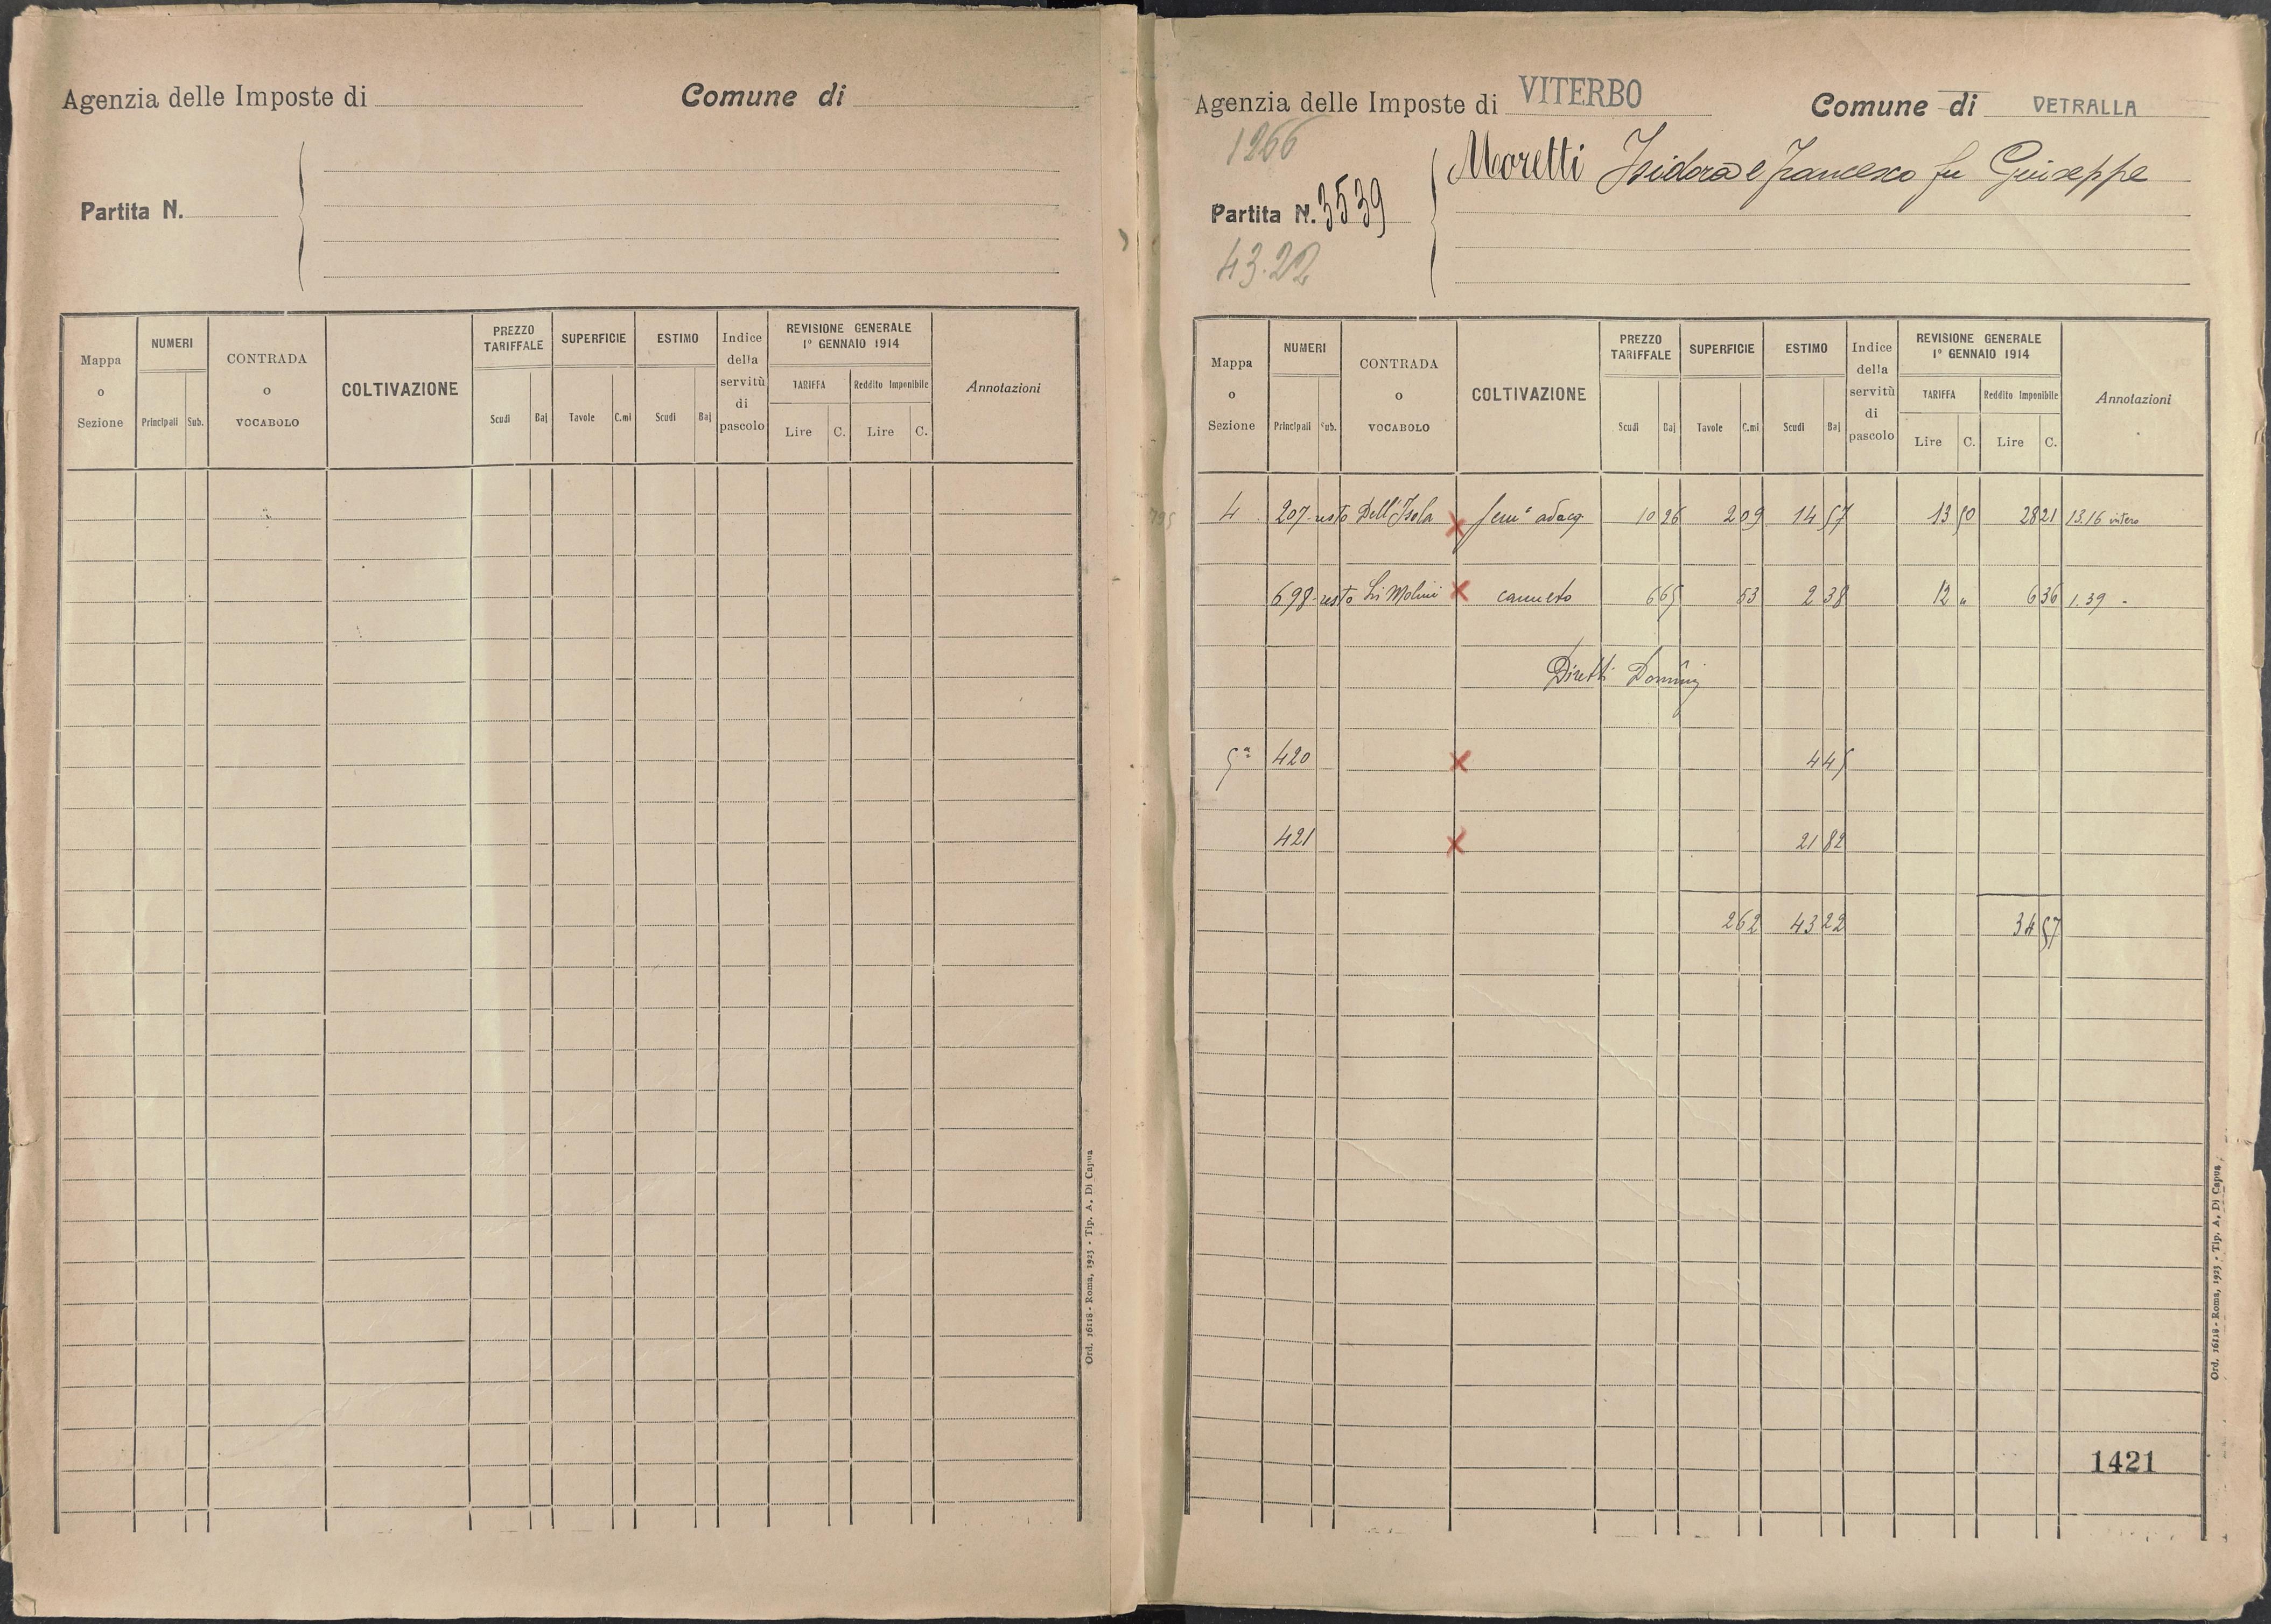 Agenzia delle Imposte di
Comune di
Partita N.
Mappa o Sezione
NUMERI
Principali Sub.
CONTRADA o VOCABOLO
COLTIVAZIONE
PREZZO TARIFFALE
Scudi Baj
SUPERFICIE
Tavole C.mi
ESTIMO
Scudi Baj
Indice della servitù di pascolo
REVISIONE GENERALE
1° GENNAIO 1914
TARIFFA Reddito Imponibile
Lire C. Lire C.
Annotazioni
Ord. 16118 - Roma, 1923 - Tip. A. Di Capua
Agenzia delle Imposte di VITERBO
Comune di VETRALLA
1266
Moretti Isidora e Francesco fu Giuseppe
Partita N. 3539
43.22
Mappa o Sezione
NUMERI
Principali Sub.
CONTRADA o VOCABOLO
COLTIVAZIONE
PREZZO TARIFFALE
Scudi Baj
SUPERFICIE
Tavole C.mi
ESTIMO
Scudi Baj
Indice della servitù di pascolo
REVISIONE GENERALE
1° GENNAIO 1914
TARIFFA Reddito Imponibile
Lire C. Lire C.
Annotazioni
4 207 resto Dell'Isola X semo adacq 10 26 2 09 14 57 13 50 28 21 13.16 intero
698 resto Li Molini X canneto 6 65 53 2 38 12 " 6 36 1.39 -
Diretti Dominij
5a 420 X 4 45
421 X 21 82
2 62 43 22 34 57
1421
Ord. 16118 - Roma, 1923 - Tip. A. Di Capua